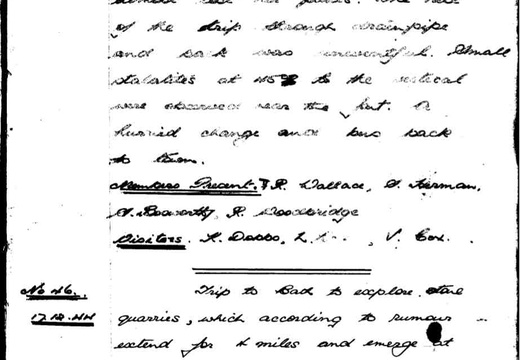 of the trip through drainpipe
and back was uneventful. Small
stalatites at 45° to the vertical
were observed near the hut. A
hurried change and bus back
to town.
Members Present. R. Wallace, S. Herman,
R. Woodbridge
Visitors. K. Dobbs, V. Cox.
No 46. Trip to Bath to explore stone
17.12.44 quarries, which according to rumour
extend for 4 miles and emerge at